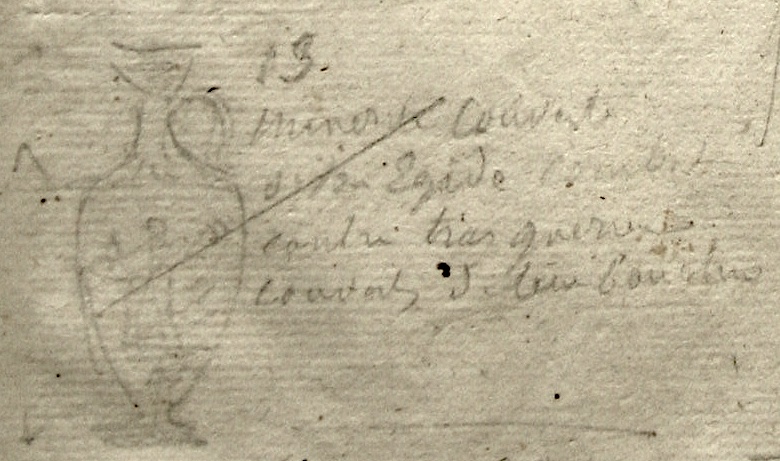 13.
minerve couverte
de son Egide combat
contre trois guerriers
couverts de leur bouclier